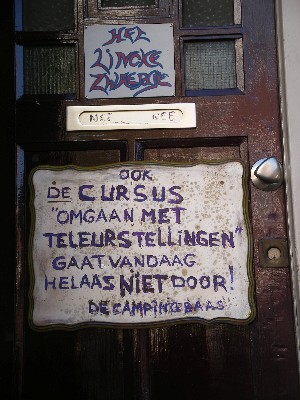 HET
LINCKE
ZWAERDT
NEE
OOK
DE CURSUS
"OMGAAN MET
TELEURSTELLINGEN"
GAAT VANDAAG
HELAAS NIET DOOR!
DE CAMPINGBAAS